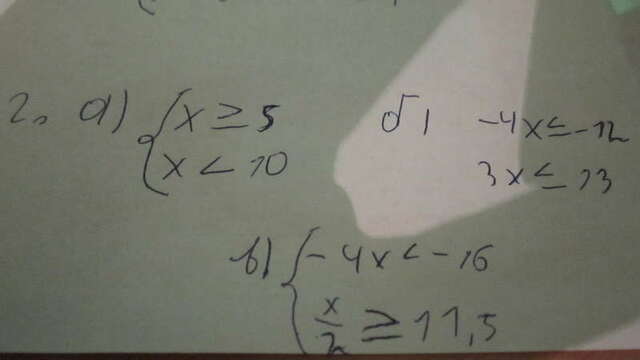 2. а) { x ≥ 5
x < 10
б) -4x ≤ -12
3x ≤ 13
в) { -4x < -16
x/2 ≥ 11,5